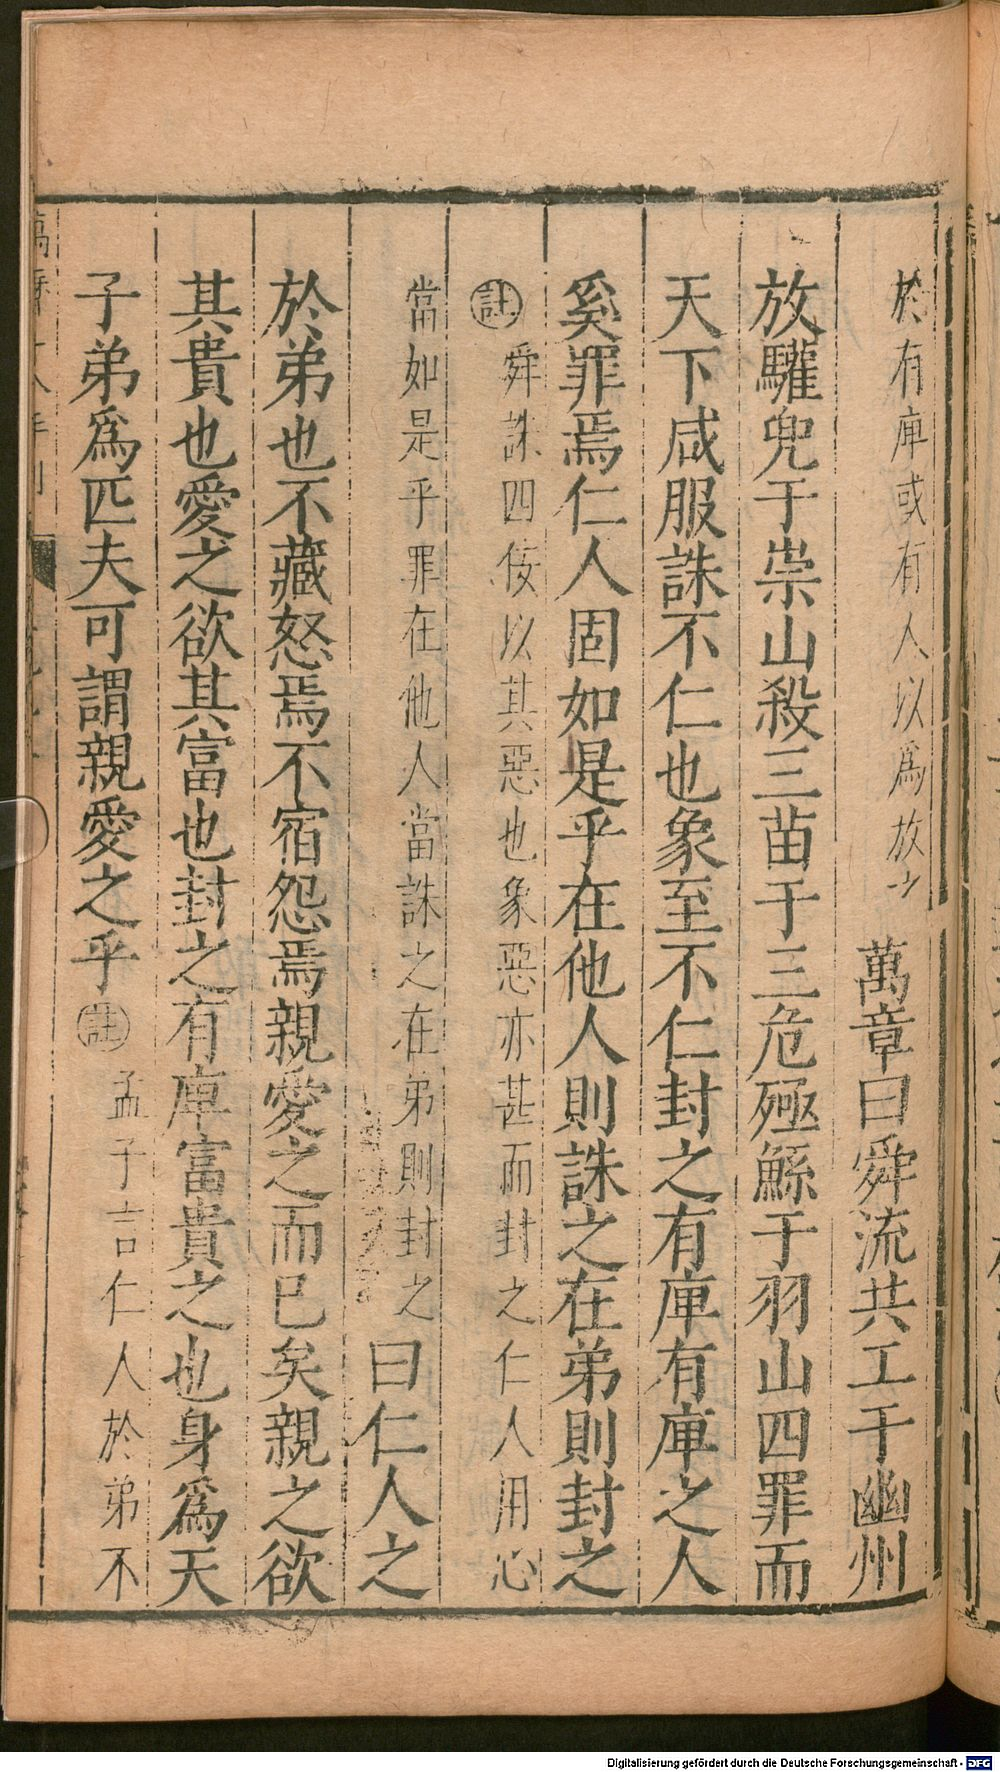 於有庳或有人以爲放之 萬章曰舜流共工于幽州
放驩兜于崇山殺三苗于三危殛鯀于羽山四罪而
天下咸服誅不仁也象至不仁封之有庳有庳之人
奚罪焉仁人固如是乎在他人則誅之在弟則封之
註 舜誅四佞以其惡也象惡亦甚而封之仁人用心
當如是乎罪在他人當誅之在弟則封之 曰仁人之
於弟也不藏怒焉不宿怨焉親愛之而已矣親之欲
其貴也愛之欲其富也封之有庳富貴之也身爲天
子弟爲匹夫可謂親愛之乎 註 孟子言仁人於弟不
Digitalisierung gefördert durch die Deutsche Forschungsgemeinschaft - DFG